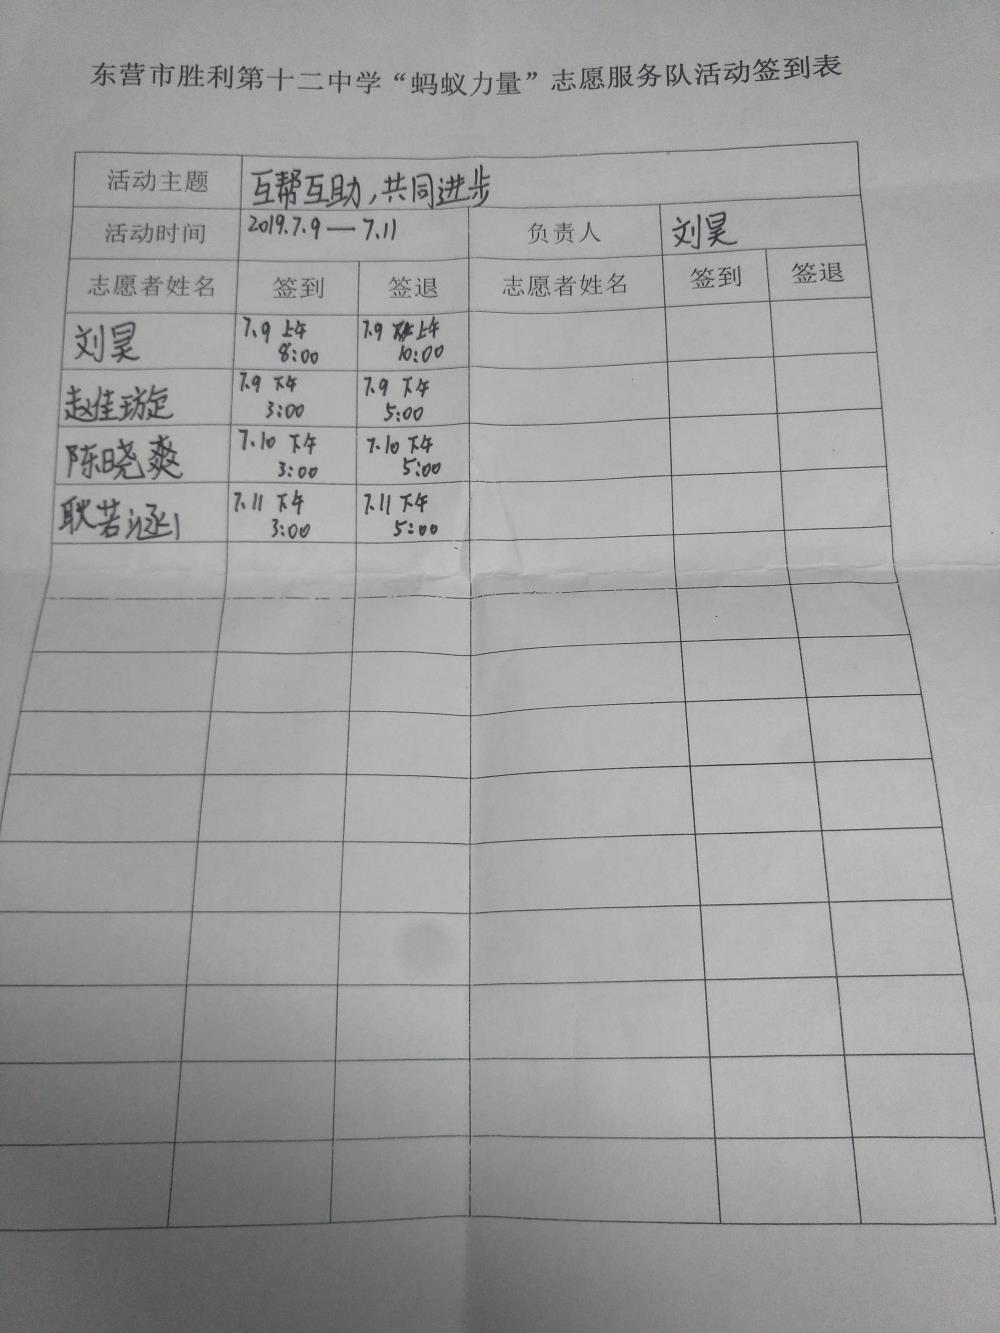 东营市胜利第十二中学“蚂蚁力量”志愿服务队活动签到表
活动主题 互帮互助,共同进步
活动时间 2019.7.9—7.11 负责人 刘昊
志愿者姓名 签到 签退 志愿者姓名 签到 签退
刘昊 7.9 上午 7.9 上午
8:00 10:00
赵佳璇 7.9 下午 7.9 下午
3:00 5:00
陈晓爽 7.10 下午 7.10 下午
3:00 5:00
耿若涵 7.11 下午 7.11 下午
3:00 5:00